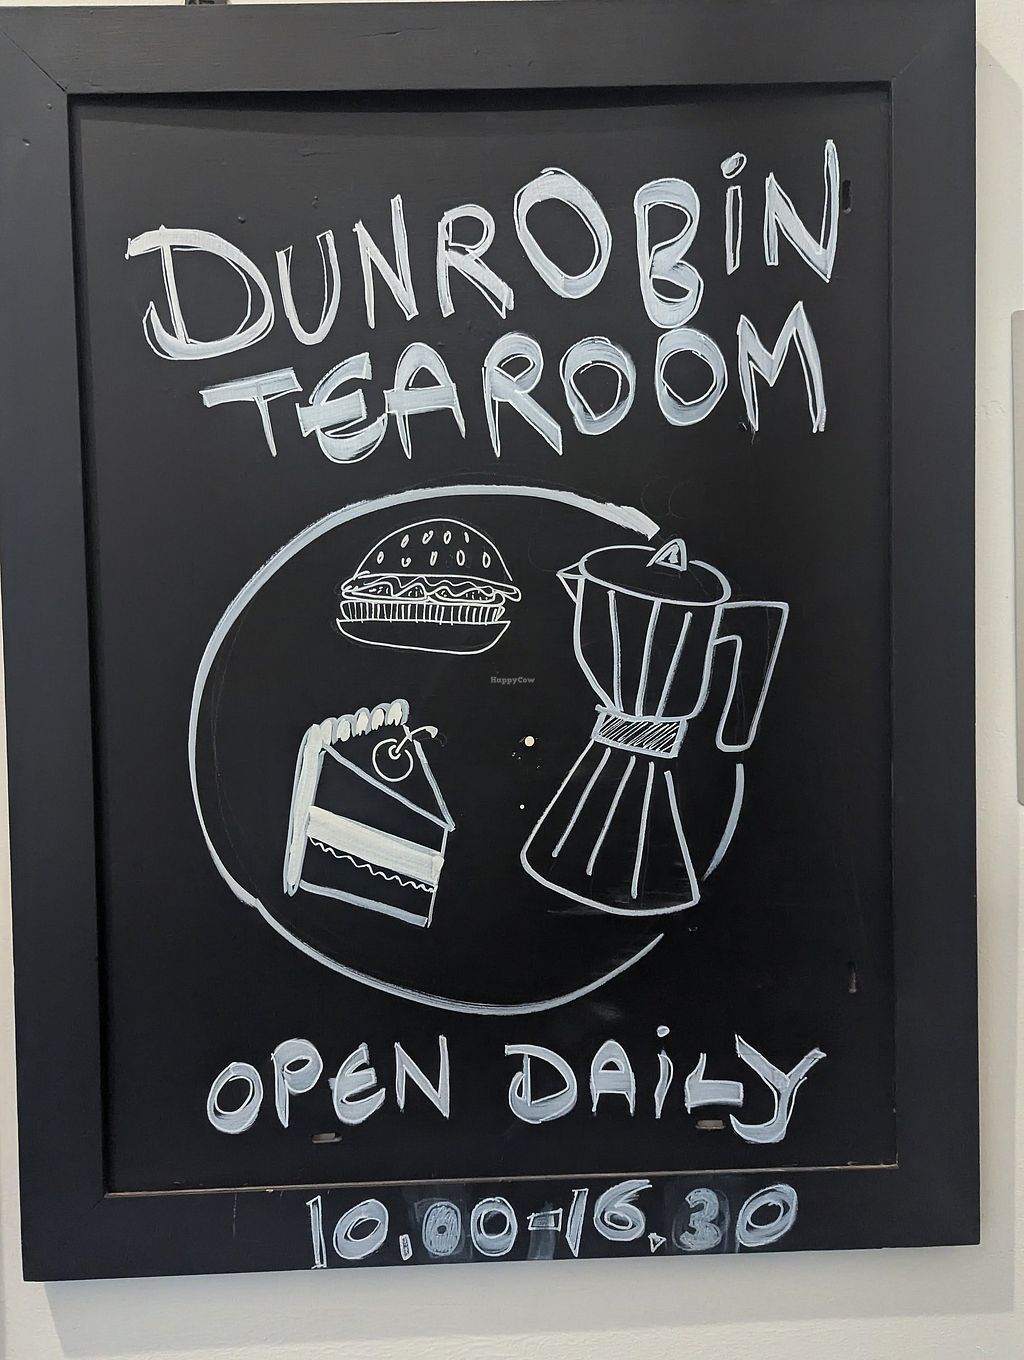 DUNROBiN
TEAROOM
HappyCow
OPEN DAiLY
10.00-16.30